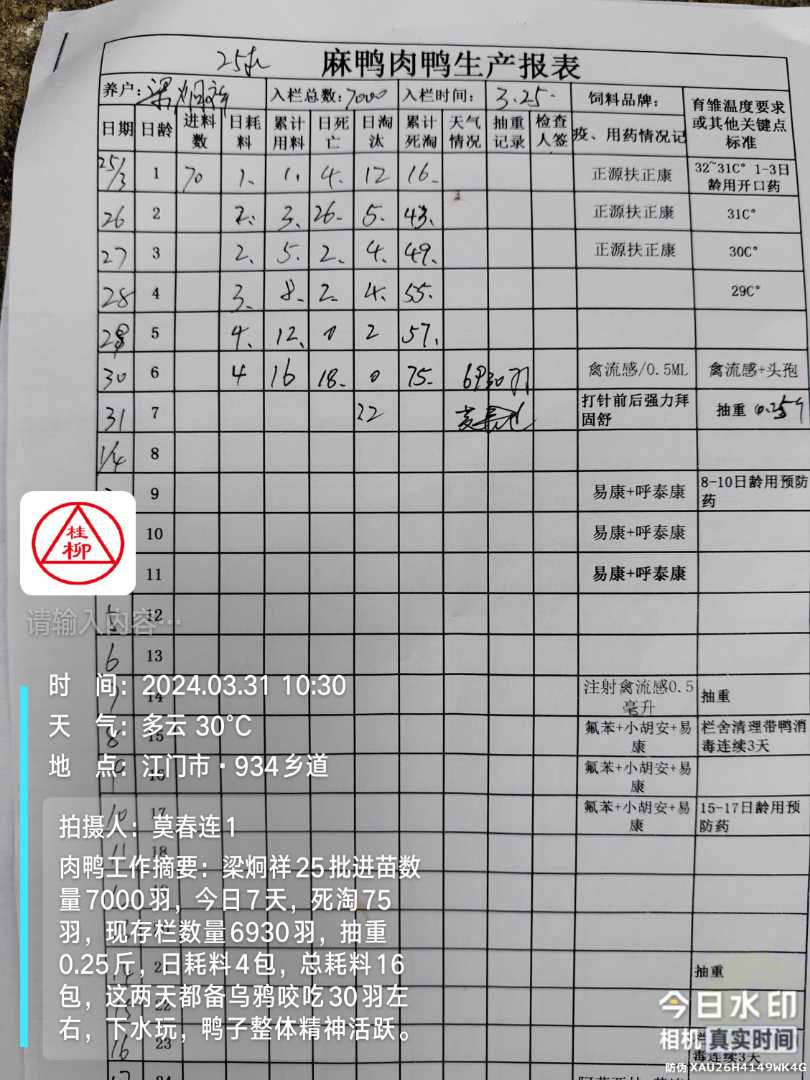 25批
麻鸭肉鸭生产报表
养户: 梁炯祥 入栏总数:7000 入栏时间: 3.25. 饲料品牌: 育雏温度要求或其他关键点标准
日期 日龄 进料数 日耗料 累计用料 日死亡 日淘汰 累计死淘 天气情况 抽重记录 检查人签 疫、用药情况记
25/3 1 70 1. 1. 4. 12 16. 正源扶正康 32~31C° 1-3日龄用开口药
26 2 2. 3. 26. 5. 43. 正源扶正康 31C°
27 3 2. 5. 2. 4. 49. 正源扶正康 30C°
28 4 3. 8. 2. 4. 55. 29C°
29 5 4. 12. 0 2 57.
30 6 4 16 18. 0 75. 6930羽 禽流感/0.5ML 禽流感+头孢
31 7 22 打针前后强力拜固舒 抽重 0.25斤
1/4 8
9 易康+呼泰康 8-10日龄用预防药
10 易康+呼泰康
11 易康+呼泰康
5 12
6 13
7 14 注射禽流感0.5毫升 抽重
8 15 氟苯+小胡安+易康 栏舍清理带鸭消毒连续3天
9 16 氟苯+小胡安+易康
10 17 氟苯+小胡安+易康 15-17日龄用预防药
11 18
抽重
22
16 23 毒连续3天
桂柳
请输入内容…
时 间: 2024.03.31 10:30
天 气: 多云 30℃
地 点: 江门市·934乡道
拍摄人: 莫春连1
肉鸭工作摘要: 梁炯祥25批进苗数
量7000羽，今日7天，死淘75
羽，现存栏数量6930羽，抽重
0.25斤，日耗料4包，总耗料16
包，这两天都备乌鸦咬吃30羽左
右，下水玩，鸭子整体精神活跃。
今日水印
相机 真实时间
防伪 XAU26H4149WK4C